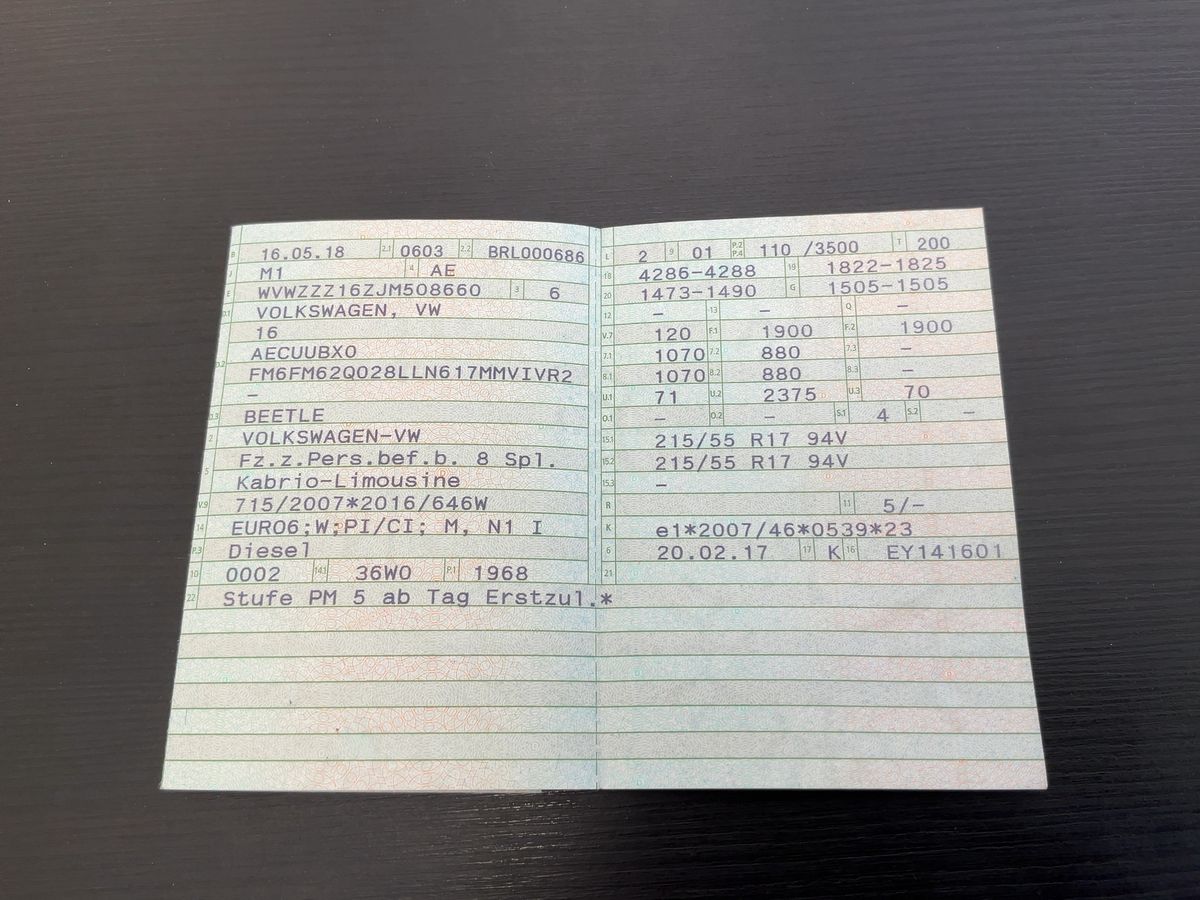 B 16.05.18 2.1 0603 2.2 BRL000686
J M1 4 AE
E WVWZZZ16ZJM508660 3 6
D.1 VOLKSWAGEN, VW
16
D.2 AECUUBX0
FM6FM62Q028LLN617MMVIVR2
–
D.3 BEETLE
2 VOLKSWAGEN-VW
5 Fz.z.Pers.bef.b. 8 Spl.
Kabrio-Limousine
V.9 715/2007*2016/646W
14 EURO6;W;PI/CI; M, N1 I
P.3 Diesel
10 0002 14.1 36W0 P.1 1968
22 Stufe PM 5 ab Tag Erstzul.*
L 2 9 01 P.2 P.4 110 /3500 T 200
18 4286-4288 19 1822-1825
20 1473-1490 G 1505-1505
12 – 13 – Q –
V.7 120 F.1 1900 F.2 1900
7.1 1070 7.2 880 7.3 –
8.1 1070 8.2 880 8.3 –
U.1 71 U.2 2375 U.3 70
O.1 – O.2 – S.1 4 S.2 –
15.1 215/55 R17 94V
15.2 215/55 R17 94V
15.3 –
R 11 5/–
K e1*2007/46*0539*23
6 20.02.17 17 K 16 EY141601
21